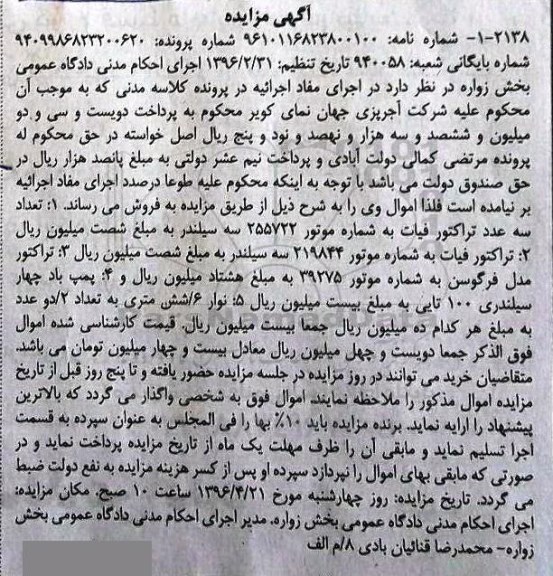 آگهی مزایده
۲۱۳۸-۱- شماره نامه: ۹۶۱۰۱۱۶۸۲۳۸۰۰۱۰۰ شماره پرونده: ۹۴۰۹۹۸۶۸۲۳۲۰۰۶۲۰
شماره بایگانی شعبه: ۹۴۰۰۵۸ تاریخ تنظیم: ۱۳۹۶/۲/۳۱ اجرای احکام مدنی دادگاه عمومی
بخش زواره در نظر دارد در اجرای مفاد اجرائیه در پرونده کلاسه مدنی که به موجب آن
محکوم علیه شرکت آجرپزی جهان نمای کویر محکوم به پرداخت دویست و سی و دو
میلیون و ششصد و سه هزار و نهصد و نود و پنج ریال اصل خواسته در حق محکوم له
پرونده مرتضی کمالی دولت آبادی و پرداخت نیم عشر دولتی به مبلغ پانصد هزار ریال در
حق صندوق دولت می باشد با توجه به اینکه محکوم علیه طوعا درصدد اجرای مفاد اجرائیه
بر نیامده است فلذا اموال وی را به شرح ذیل از طریق مزایده به فروش می رساند. ۱: تعداد
سه عدد تراکتور فیات به شماره موتور ۲۵۵۷۲۲ سه سیلندر به مبلغ شصت میلیون ریال
۲: تراکتور فیات به شماره موتور ۲۱۹۸۴۴ سه سیلندر به مبلغ شصت میلیون ریال ۳: تراکتور
مدل فرگوسن به شماره موتور ۳۹۲۷۵ به مبلغ هشتاد میلیون ریال و ۴: پمپ باد چهار
سیلندری ۱۰۰ تایی به مبلغ بیست میلیون ریال ۵: نوار ۶/شش متری به تعداد ۲/دو عدد
به مبلغ هر کدام ده میلیون ریال جمعا بیست میلیون ریال. قیمت کارشناسی شده اموال
فوق الذکر جمعا دویست و چهل میلیون ریال معادل بیست و چهار میلیون تومان می باشد.
متقاضیان خرید می توانند در روز مزایده در جلسه مزایده حضور یافته و تا پنج روز قبل از تاریخ
مزایده اموال مذکور را ملاحظه نمایند. اموال فوق به شخصی واگذار می گردد که بالاترین
پیشنهاد را ارایه نماید. برنده مزایده باید ۱۰٪ بها را فی المجلس به عنوان سپرده به قسمت
اجرا تسلیم نماید و مابقی آن را ظرف مهلت یک ماه از تاریخ مزایده پرداخت نماید و در
صورتی که مابقی بهای اموال را نپردازد سپرده او پس از کسر هزینه مزایده به نفع دولت ضبط
می گردد. تاریخ مزایده: روز چهارشنبه مورخ ۱۳۹۶/۴/۲۱ ساعت ۱۰ صبح. مکان مزایده:
اجرای احکام مدنی دادگاه عمومی بخش زواره. مدیر اجرای احکام مدنی دادگاه عمومی بخش
زواره- محمدرضا قنائیان بادی ۸/م الف